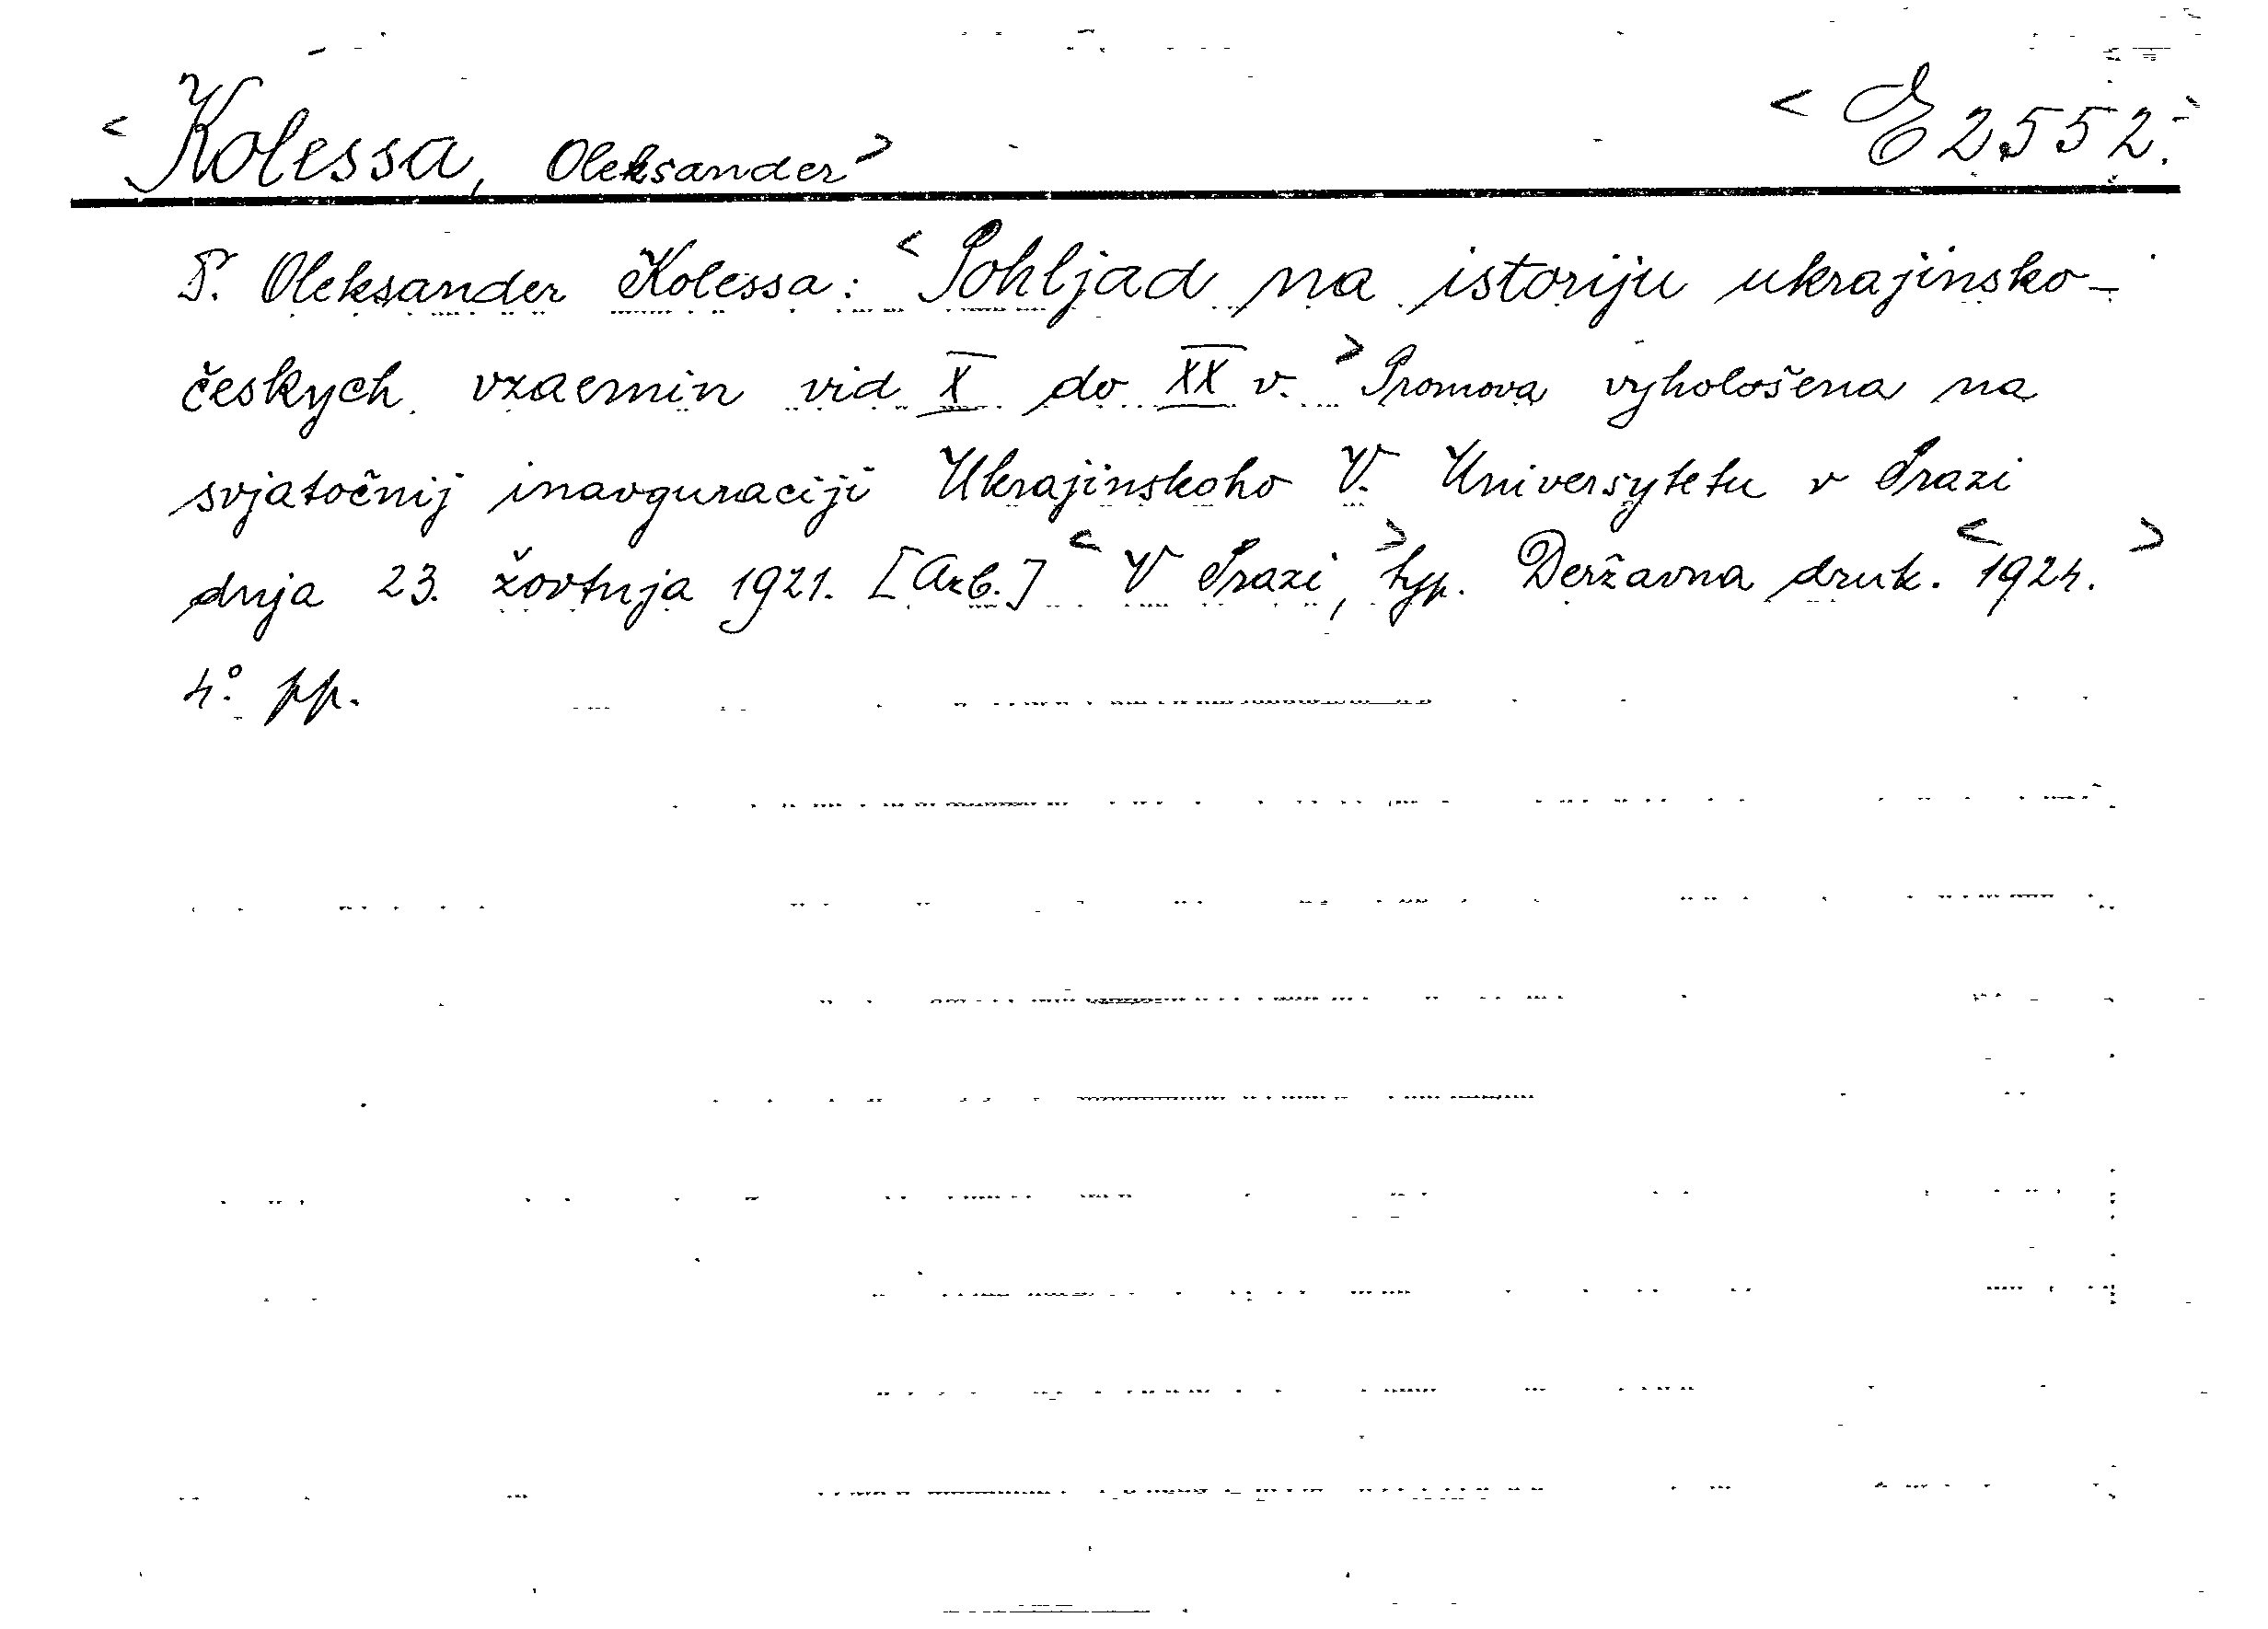 <Kolessa, Oleksander> <E 2552.>
P. Oleksander Kolessa: <Pohljad na istoriju ukrajinsko-
českych vzaemin vid X do XX v.> Promova vyhološena na
svjatočnij inavguraciji Ukrajinskoho V. Universytetu v Prazi
dnja 23. žovtnja 1921. [Azb.] <V Prazi,> typ. Deržavna druk. <1924.>
4°. pp.